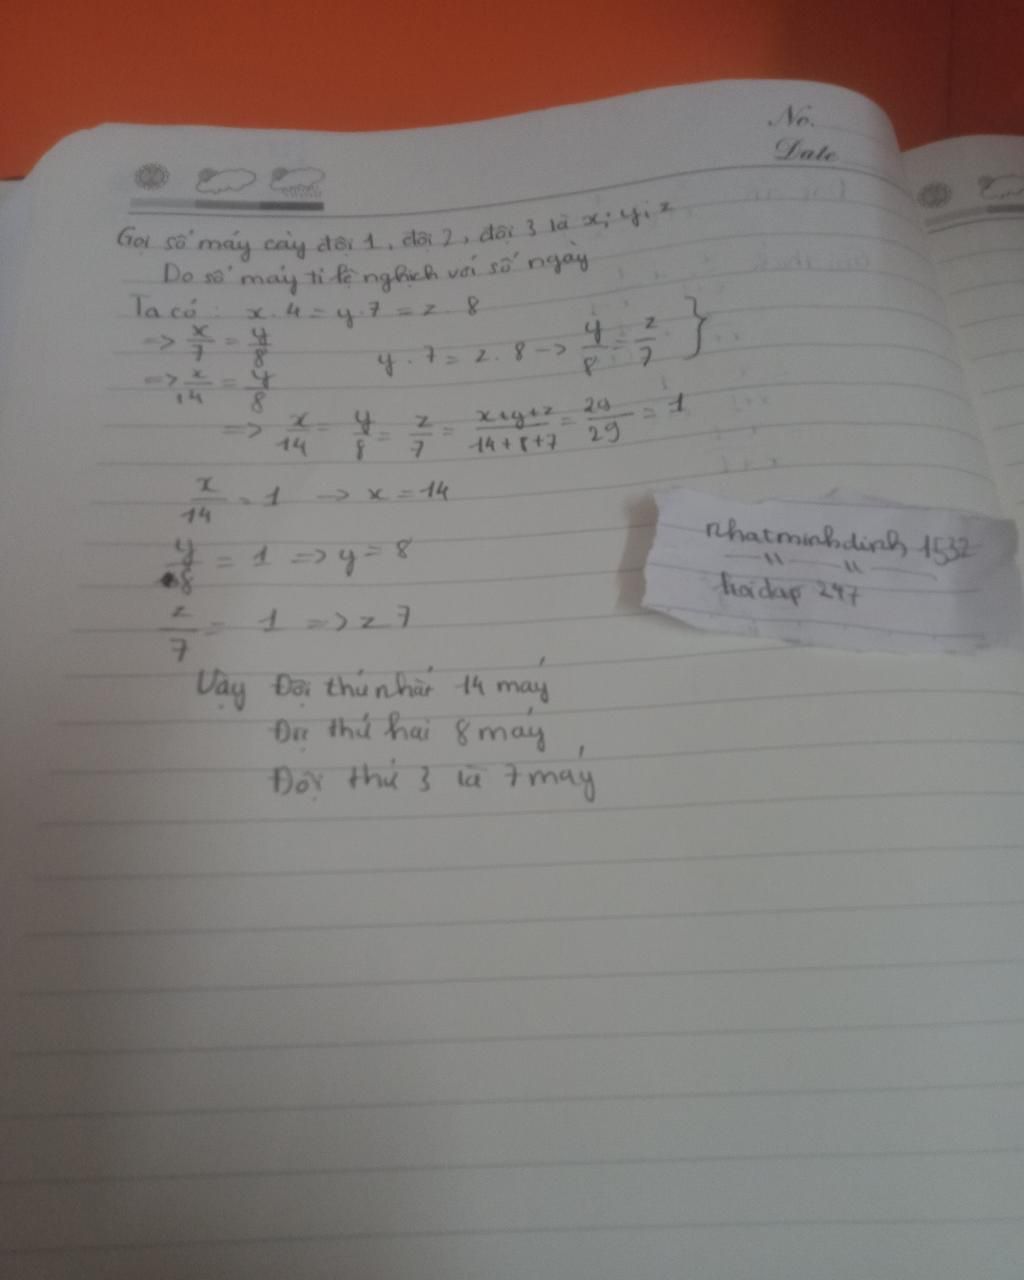 No.
Date
Gọi số máy cày đội 1, đội 2, đội 3 là x; y; z
Do số máy tỉ lệ nghịch với số ngày
Ta có: x . 4 = y . 7 = z . 8
=> x/7 = y/8 y . 7 = z . 8 -> y/8 = z/7 }
=> x/14 = y/8
=> x/14 = y/8 = z/7 = x+y+z/14+8+7 = 29/29 = 1
x/14 = 1 -> x = 14
y/8 = 1 => y = 8
z/7 = 1 => z 7
Vậy Đội thứ nhất 14 máy
thứ hai 8 máy
Đội thứ 3 là 7 máy
nhatminhdinh 1532
hoidap 247